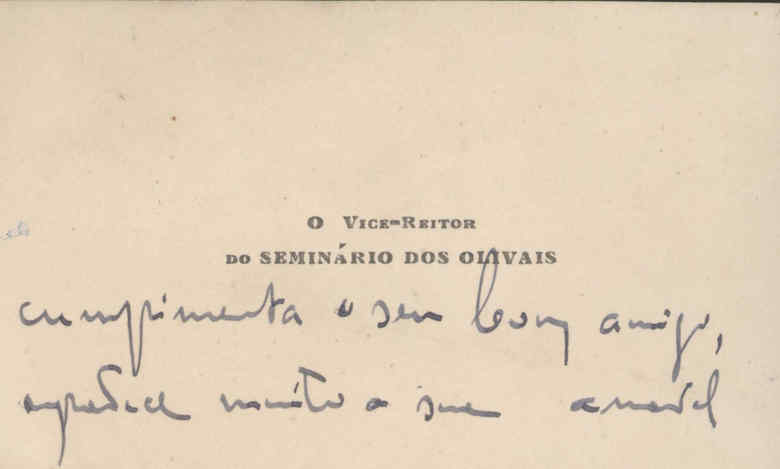 O VICE-REITOR
DO SEMINÁRIO DOS OLIVAIS
cumprimenta o seu bom amigo,
agradece muito a sua amável